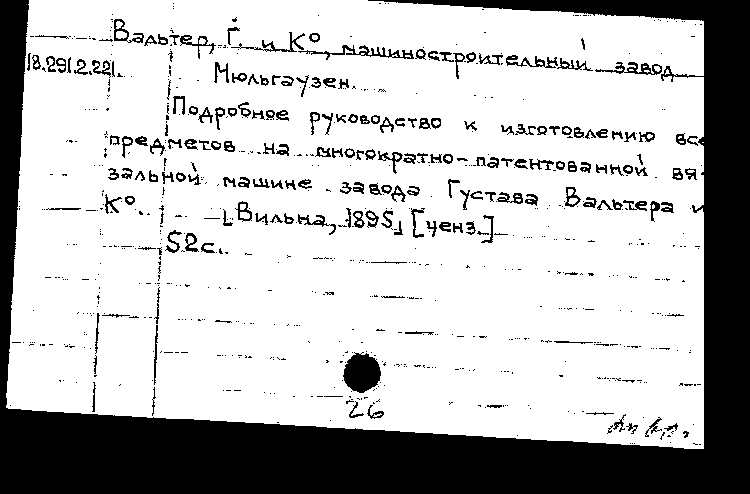 Вальтер, Г. и К°, машиностроительный завод
18.291.2.221.
Мюльгаузен.
Подробное руководство к изготовлению все
предметов на многократно-патентованной вя-
зальной машине завода Густава Вальтера и
К°. [Вильна, 1895] [ценз.]
52с.
26